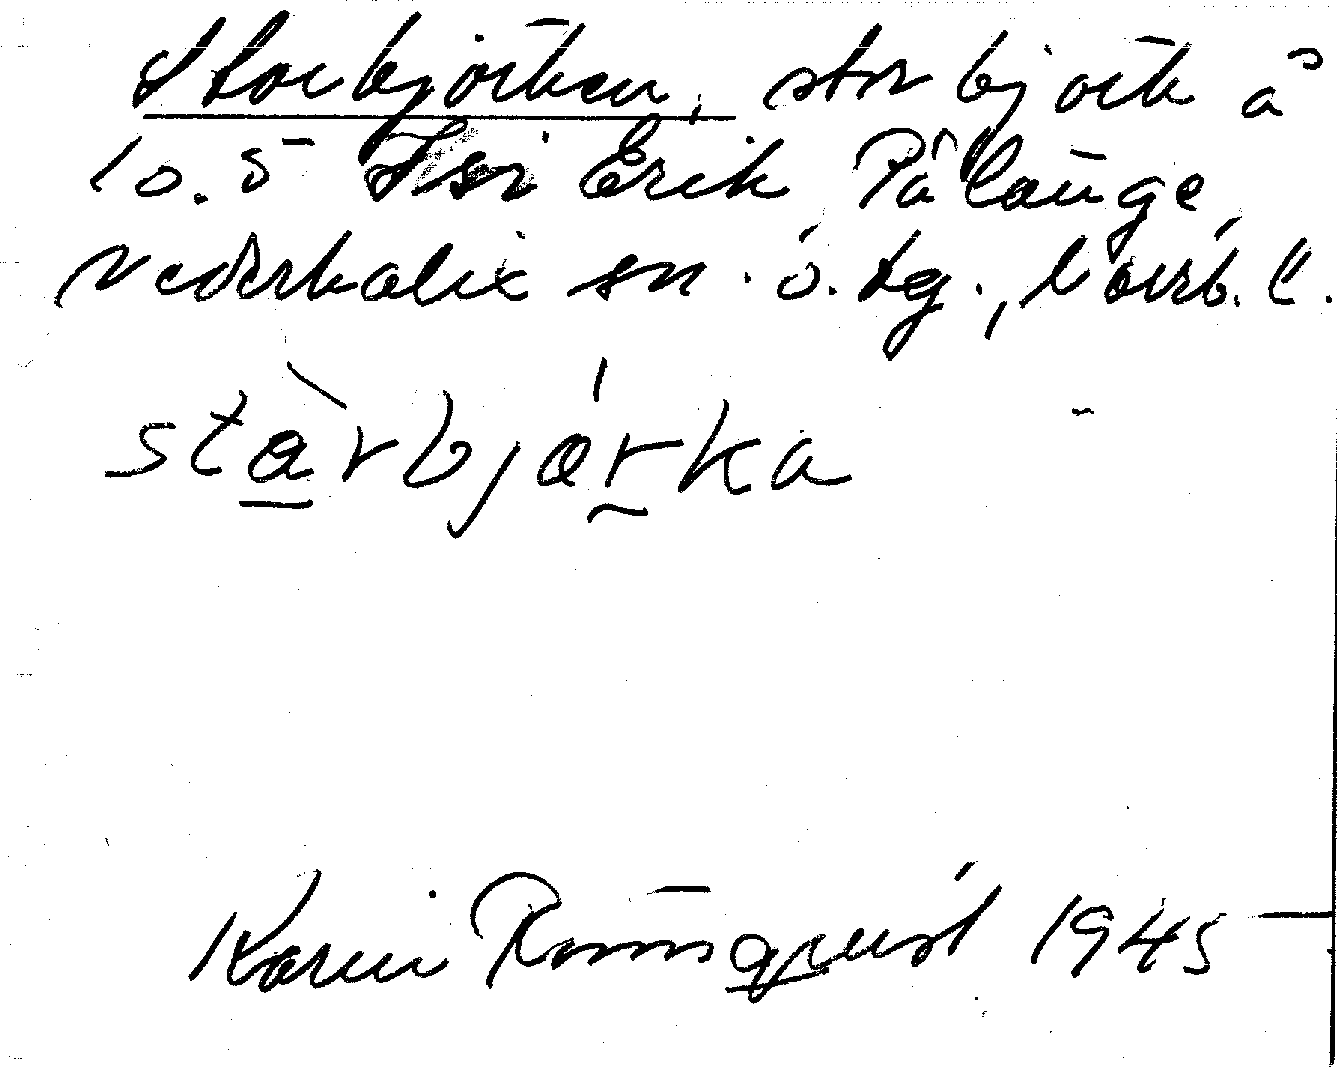 Storbjörken, stor björk å
10.5 Erik Pålänge,
Nederkalix sn. ö. tg., Norrb. l.
stàrbjárka
Karin Rönnqvist 1945